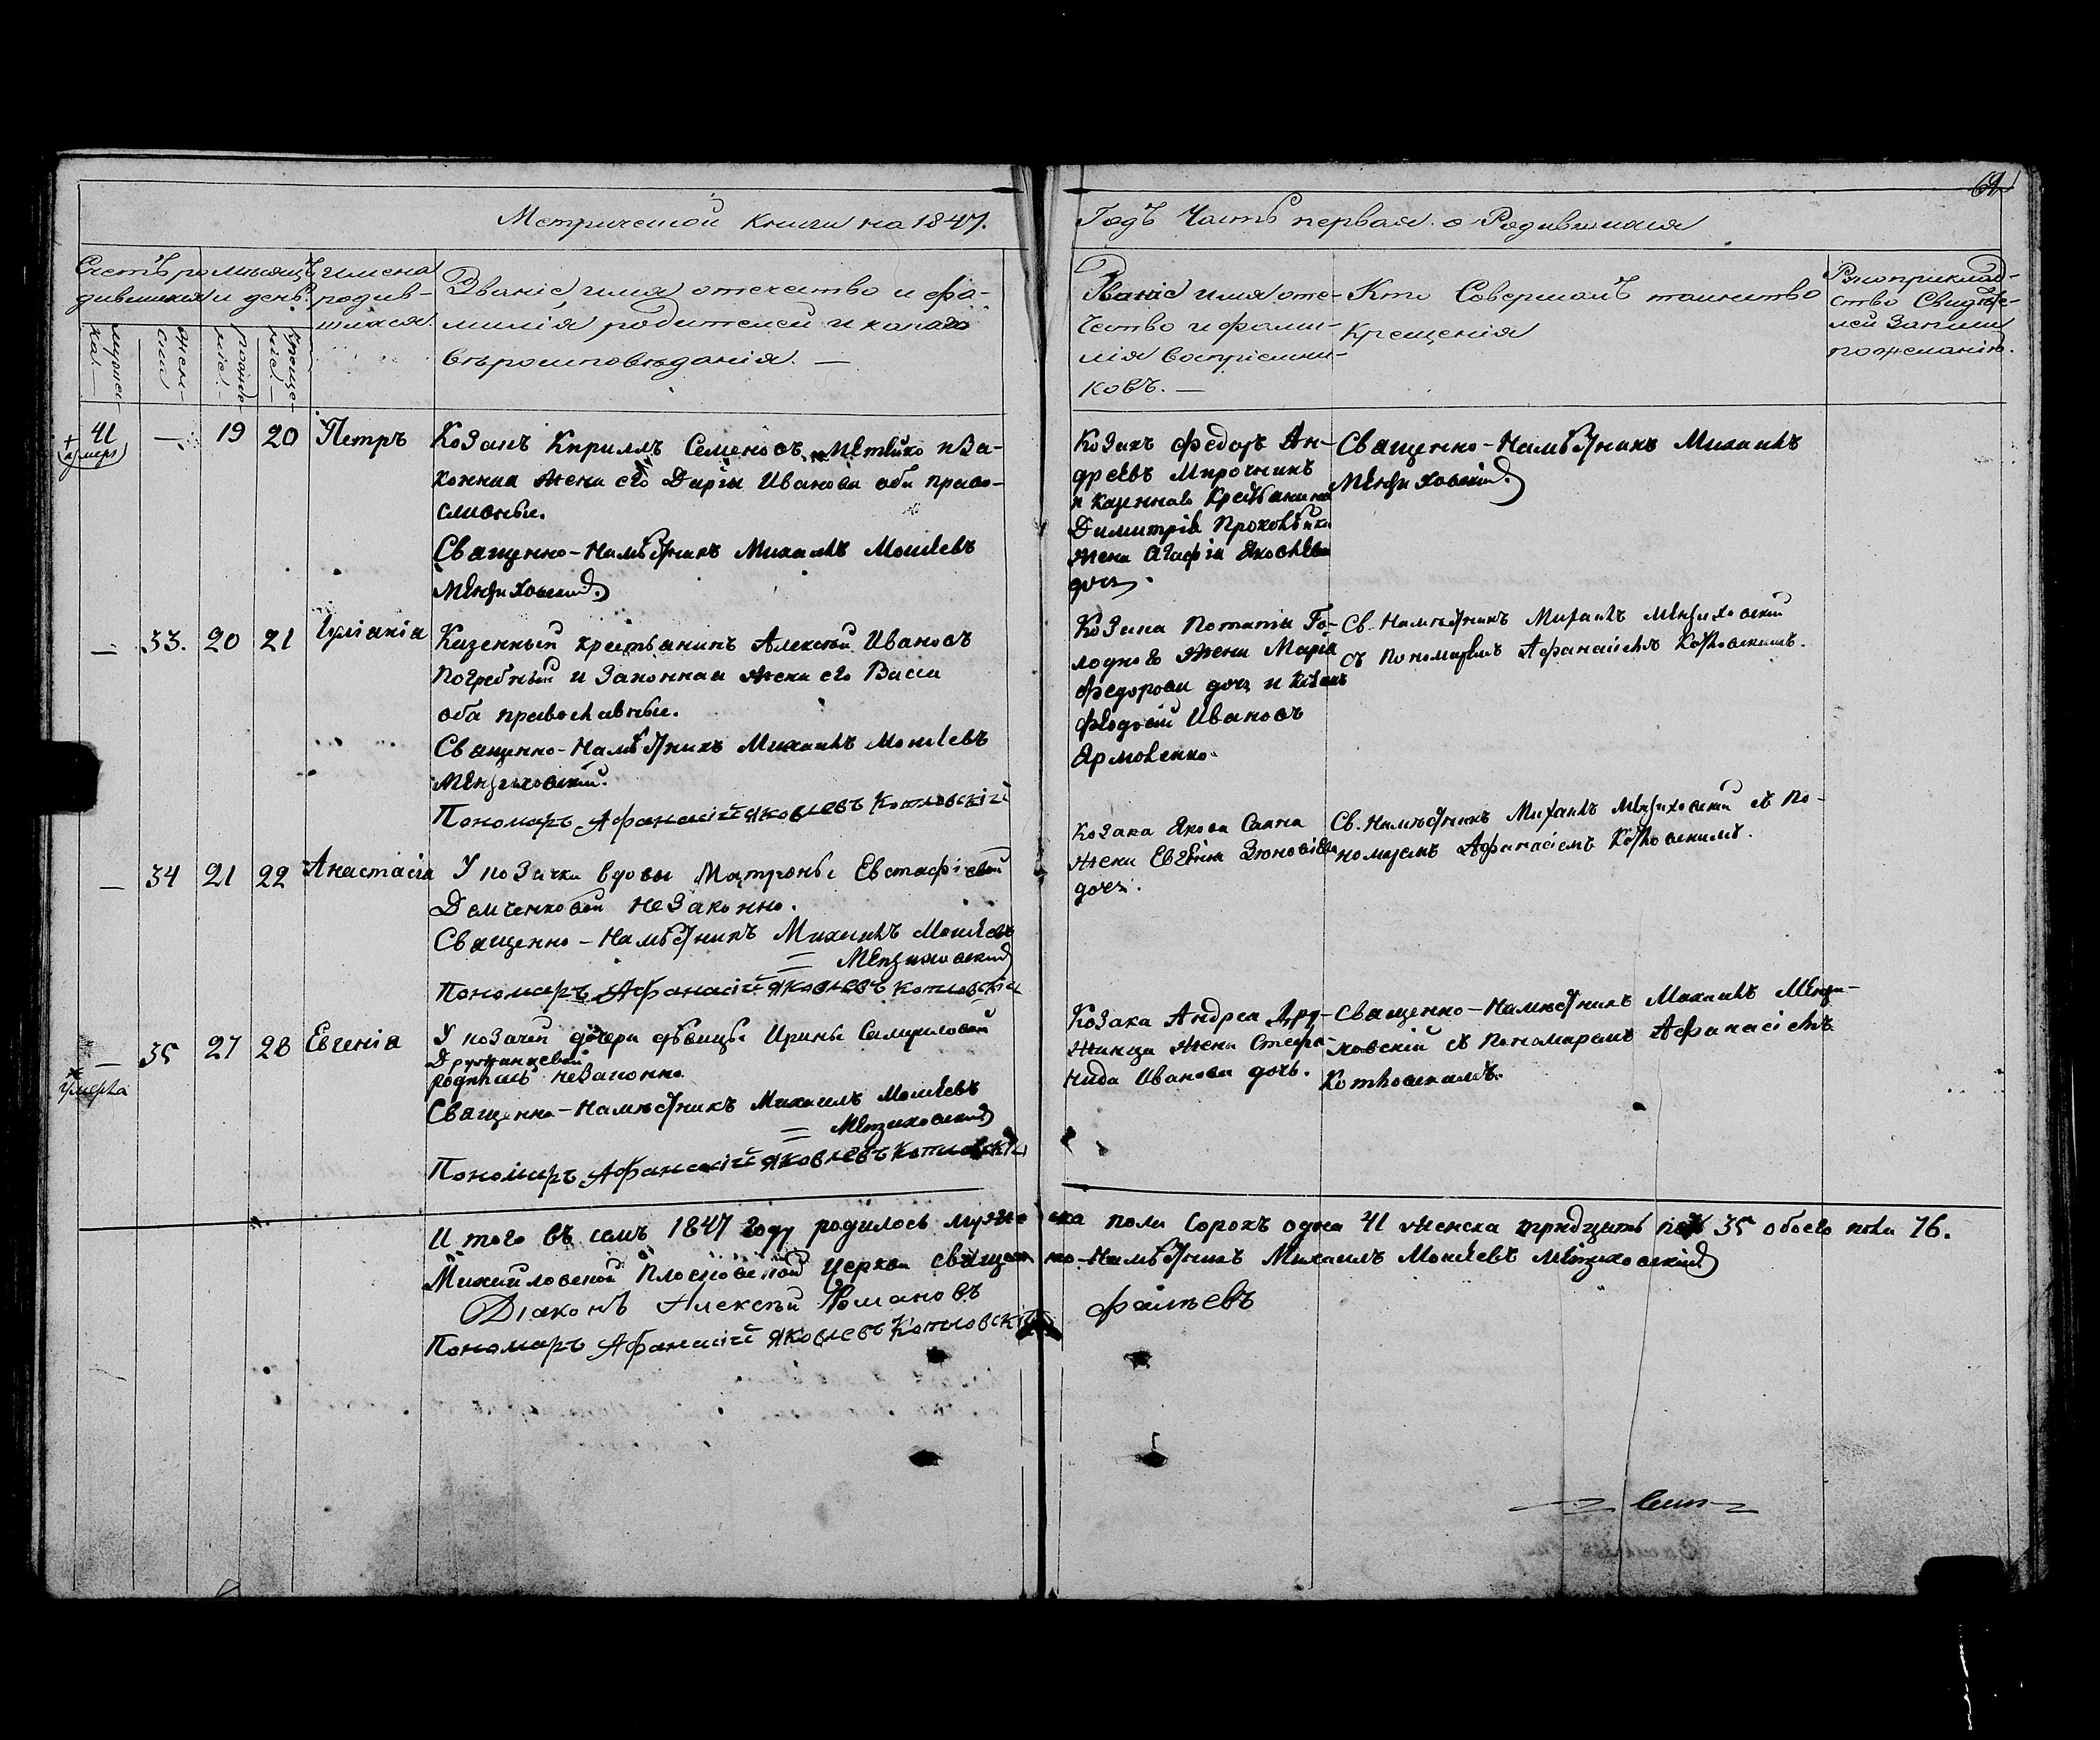 69
Метрической книги на 1847.
Годъ Часть первая о Родившихся
Счетъ ро-
дившихся
мужес-
ка
женс-
ка
мѣсяцъ
и день
рожде-
ніе
креще-
ніе
имена
родив-
шихся.
Званіе имя отечество и фа-
милія родителей и какого
вѣроисповѣданія. —
Званіе имя оте-
чество и фами-
лія воспріемни-
ковъ. —
Кто Совершалъ таинство
Крещенія
Рукоприклад-
ство Свидѣте-
лей Записи
по желанію.
41 — 19 20 Петръ
+ умеръ
Козакъ Кириллъ Семеновъ и за-
конная жена его Дарія Иванова оба право-
славные.
Священно-Намѣстникъ Михаилъ Моисеевъ
Мензиховскій
Козакъ Федоръ Ан-
дреевъ Мирочникъ
и казеннаго Крестьянина
Димитрія
жена Агафія Яковлева
дочь.
Священно-Намѣстникъ Михаилъ
Мензиховскій
— 33. 20 21 Іуліанія
Казенный крестьянинъ Алексѣй Ивановъ
Погребный и Законная жена его Васса
оба православные.
Священно-Намѣстникъ Михаилъ Моисеевъ
Мензиховскій.
Пономарь Афанасій Яковлевъ Котловскій
Козака Потапія Го-
лоднаго жена Марія
Федорова дочь и Козакъ
Ивановъ
Ярмоленко.
Св. Намѣстникъ Михаилъ Мензиховскій
съ Пономаремъ Афанасіемъ Котловскимъ.
— 34 21 22 Анастасія
У козачки вдовы Матроны Евстафіевой
Демченковой незаконно.
Священно-Намѣстникъ Михаилъ Моисеевъ
= Мензиховскій
Пономарь Афанасій Яковлевъ Котловскій
Козака Якова
жена Евгенія Зиновіева
дочь.
Св. Намѣстникъ Михаилъ Мензиховскій съ По-
номаремъ Афанасіемъ Котловскимъ.
— 35 27 28 Евгенія
умерла
У козачей дочери дѣвицы Ирины Самуиловой
Дружинцевой
родилась незаконно
Священно-Намѣстникъ Михаилъ Моисеевъ
= Мензиховскій
Пономарь Афанасій Яковлевъ Котловскій
Козака Андрея Дру-
жинца жена Стефа-
нида Иванова дочь.
Священно-Намѣстникъ Михаилъ Мензи-
ховскій съ Пономаремъ Афанасіемъ
Котловскимъ.
И того въ семъ 1847 году родилось мужеска пола сорокъ одна 41 женска тридцать пять 35 обоего пола 76.
Михайловской Плосковской церкви священно-Намѣстникъ Михаилъ Моисеевъ Мензиховскій
Діаконъ Алексѣй Романовъ Фалѣевъ
Пономарь Афанасій Яковлевъ Котловскій